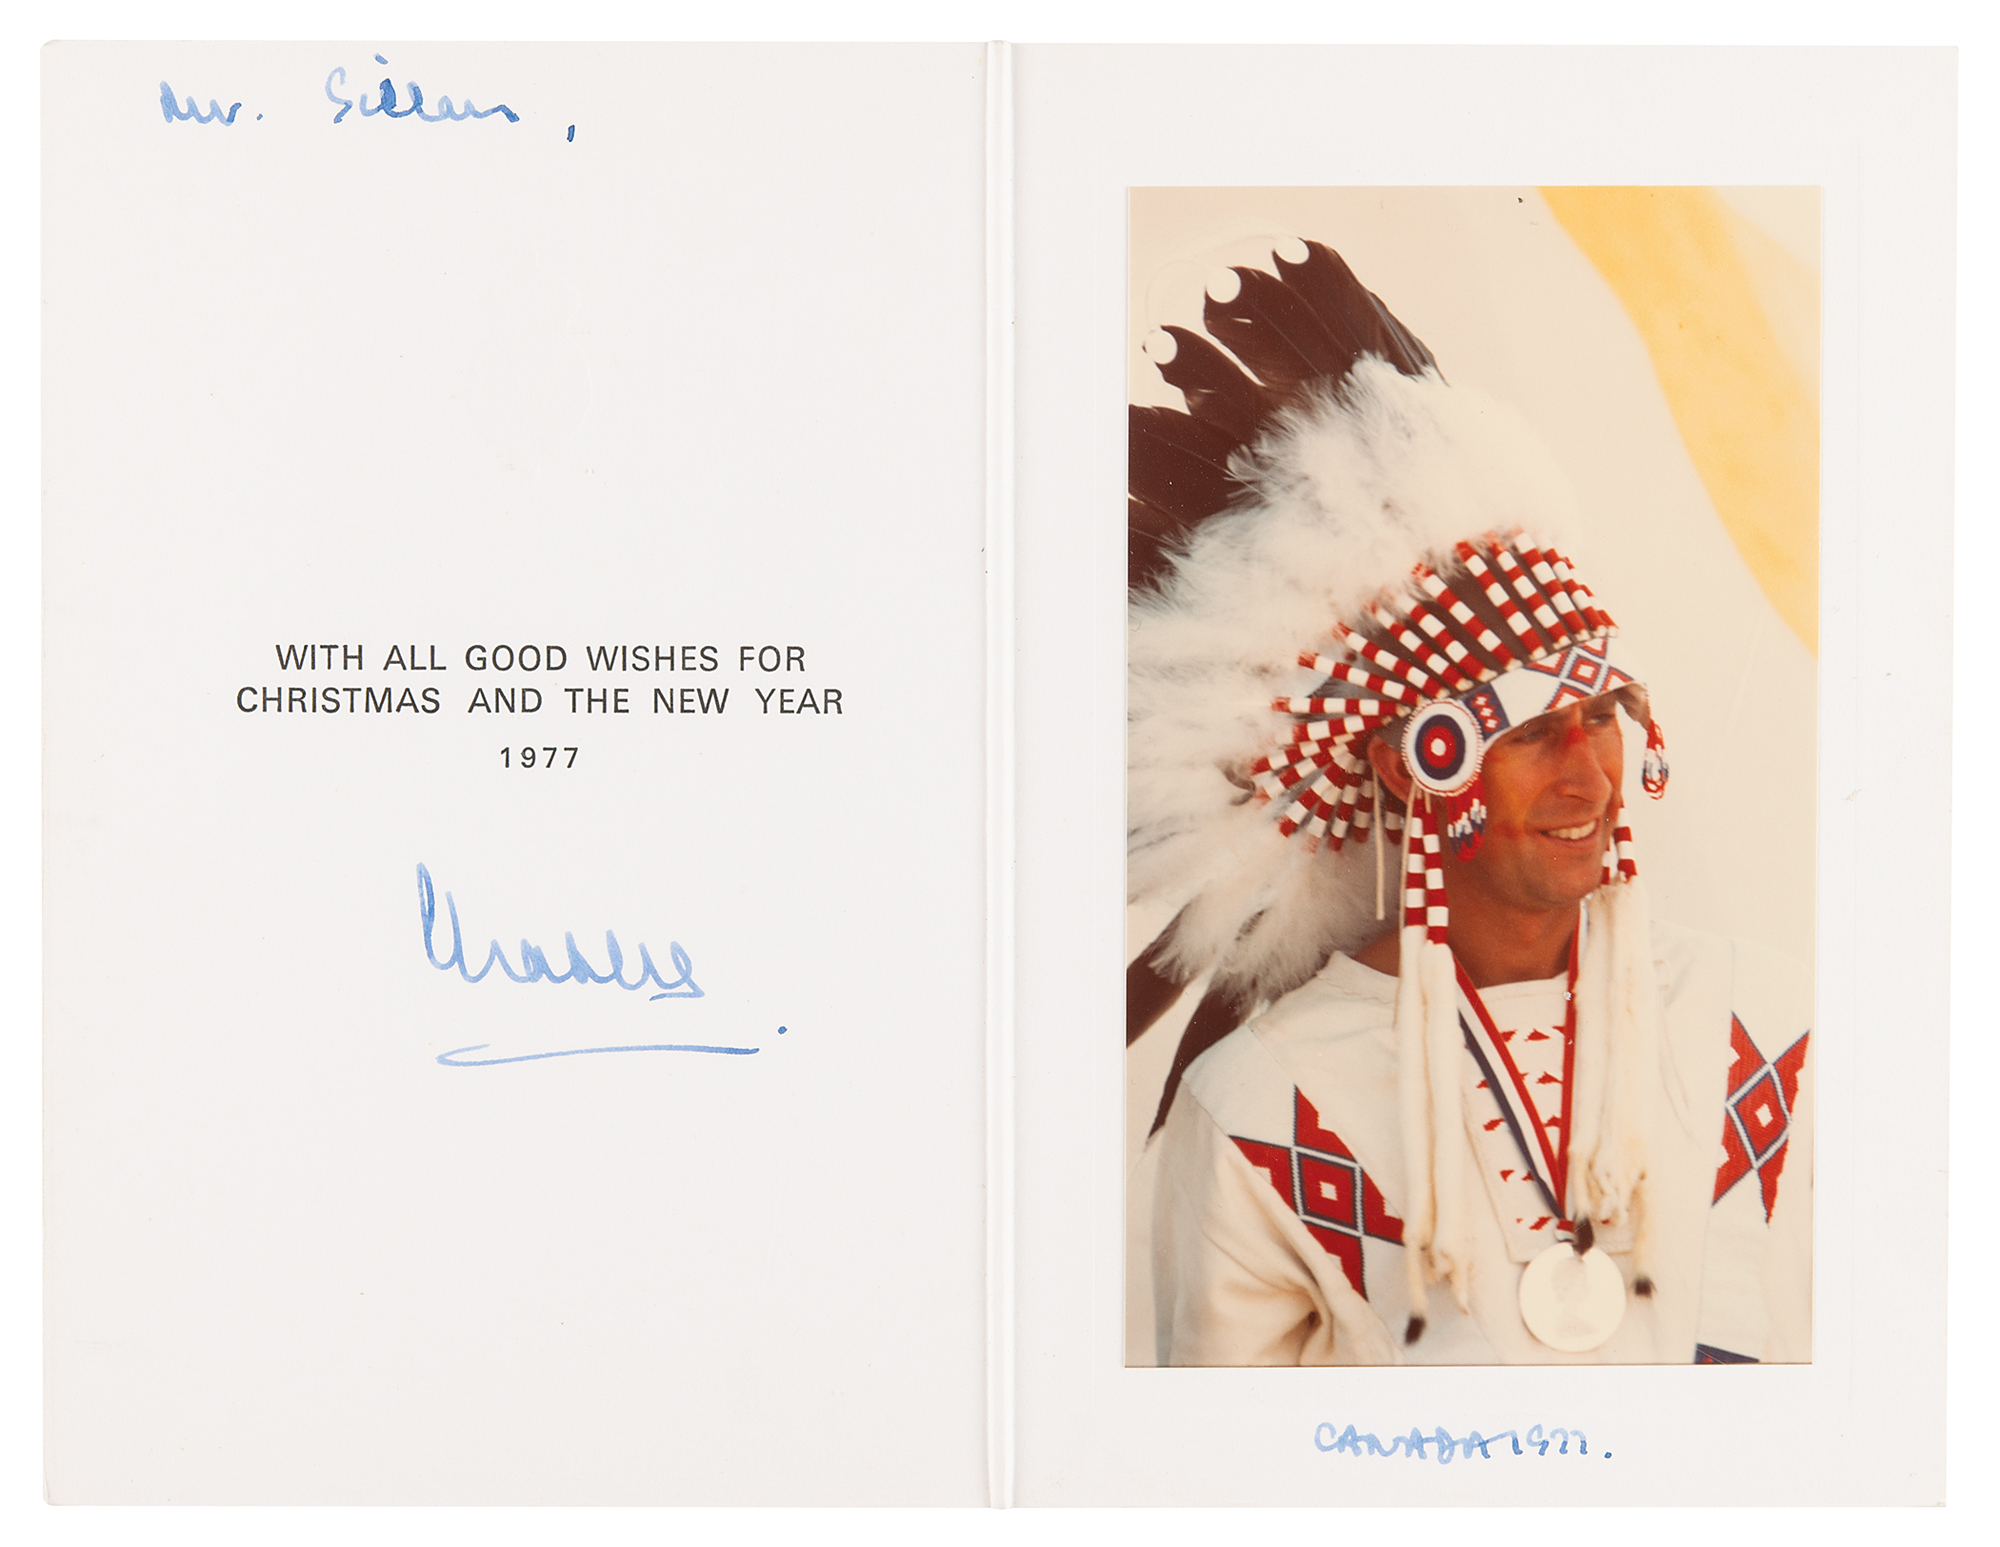 Mr. Gillan,
WITH ALL GOOD WISHES FOR
CHRISTMAS AND THE NEW YEAR
1977
Charles
CANADA 1977.